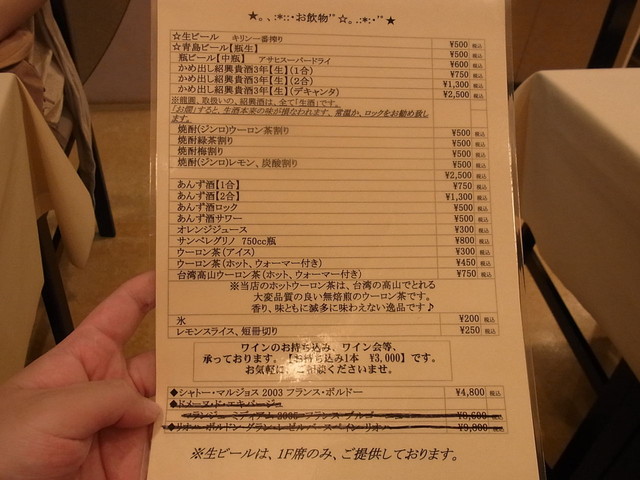 ★。、:*:::・お飲物”☆。.:*:・”★
☆生ビール キリン一番搾り ¥500 税込
☆青島ビール【瓶生】 ¥500 税込
瓶ビール【中瓶】 アサヒスーパードライ ¥600 税込
かめ出し紹興貴酒3年【生】(1合) ¥750 税込
かめ出し紹興貴酒3年【生】(2合) ¥1,300 税込
かめ出し紹興貴酒3年【生】(デキャンタ) ¥2,500 税込
※龍圓、取扱いの、紹興酒は、全て「生酒」です。
「お燗」すると、生酒本来の味が損なわれます、常温か、ロックをお勧め致します。
焼酎(ジンロ)ウーロン茶割り ¥500 税込
焼酎緑茶割り ¥500 税込
焼酎梅割り ¥500 税込
焼酎(ジンロ)レモン、炭酸割り ¥500 税込
¥2,500 税込
あんず酒【1合】 ¥750 税込
あんず酒【2合】 ¥1,300 税込
あんず酒ロック ¥500 税込
あんず酒サワー ¥500 税込
オレンジジュース ¥300 税込
サンペレグリノ 750cc瓶 ¥800 税込
ウーロン茶(アイス) ¥300 税込
ウーロン茶(ホット、ウォーマー付き) ¥450 税込
台湾高山ウーロン茶(ホット、ウォーマー付き) ¥750 税込
※当店のホットウーロン茶は、台湾の高山でとれる
大変品質の良い無焙煎のウーロン茶です。
香り、味ともに滅多に味わえない逸品です♪
氷 ¥200 税込
レモンスライス、短冊切り ¥250 税込
ワインのお持ち込み、ワイン会等、
承っております。【お持ち込み1本 ¥3,000】です。
お気軽に、ご相談くださいませ。
◆シャトー・マルジョス 2003 フランス・ボルドー ¥4,800 税込
◆ドメーヌ・ド・エキパージュ
¥8,600 税込
◆リオハ・ボルドン・グラン・レゼルバ スペイン・リオハ ¥9,800 税込
※生ビールは、1F席のみ、ご提供しております。